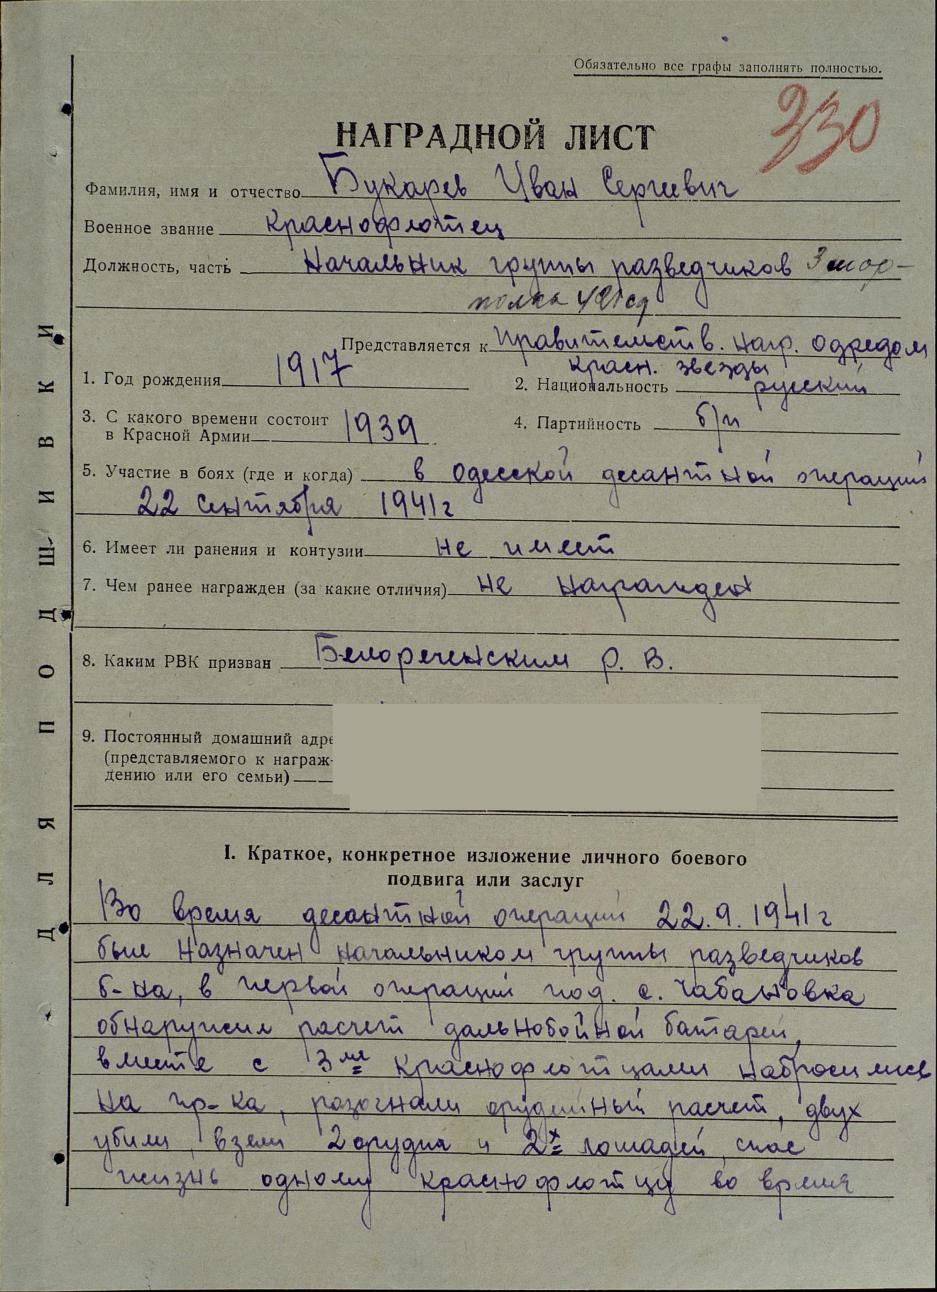 Обязательно все графы заполнять полностью.
330
НАГРАДНОЙ ЛИСТ
Фамилия, имя и отчество Букарев Иван Сергиевич
Военное звание Краснофлотец
Должность, часть Начальник группы разведчиков 3 мор-
полка 421 сд
Представляется к Правительств. нагр. Орденом
Красн. звезды
1. Год рождения 1917 2. Национальность русский
3. С какого времени состоит в Красной Армии 1939 4. Партийность б/п
5. Участие в боях (где и когда) в Одесской десантной операций
22 сентября 1941 г
6. Имеет ли ранения и контузии не имеет
7. Чем ранее награжден (за какие отличия) не награжден
8. Каким РВК призван Белореченским Р. В.
9. Постоянный домашний адре
(представляемого к награж-
дению или его семьи)
I. Краткое, конкретное изложение личного боевого
подвига или заслуг
Во время десантной операций 22.9.1941 г
был назначен начальником группы разведчиков
б-на, в первой операций под. с. Чабановка
обнаружил расчет дальнобойной батареи,
вместе с 3мя Краснофлотцами набросились
на пр-ка, разогнали орудийный расчет, двух
убили, взяли 2 орудия и 2х лошадей, спас
жизнь одному краснофлотцу во время
ДЛЯ ПОДШИВКИ